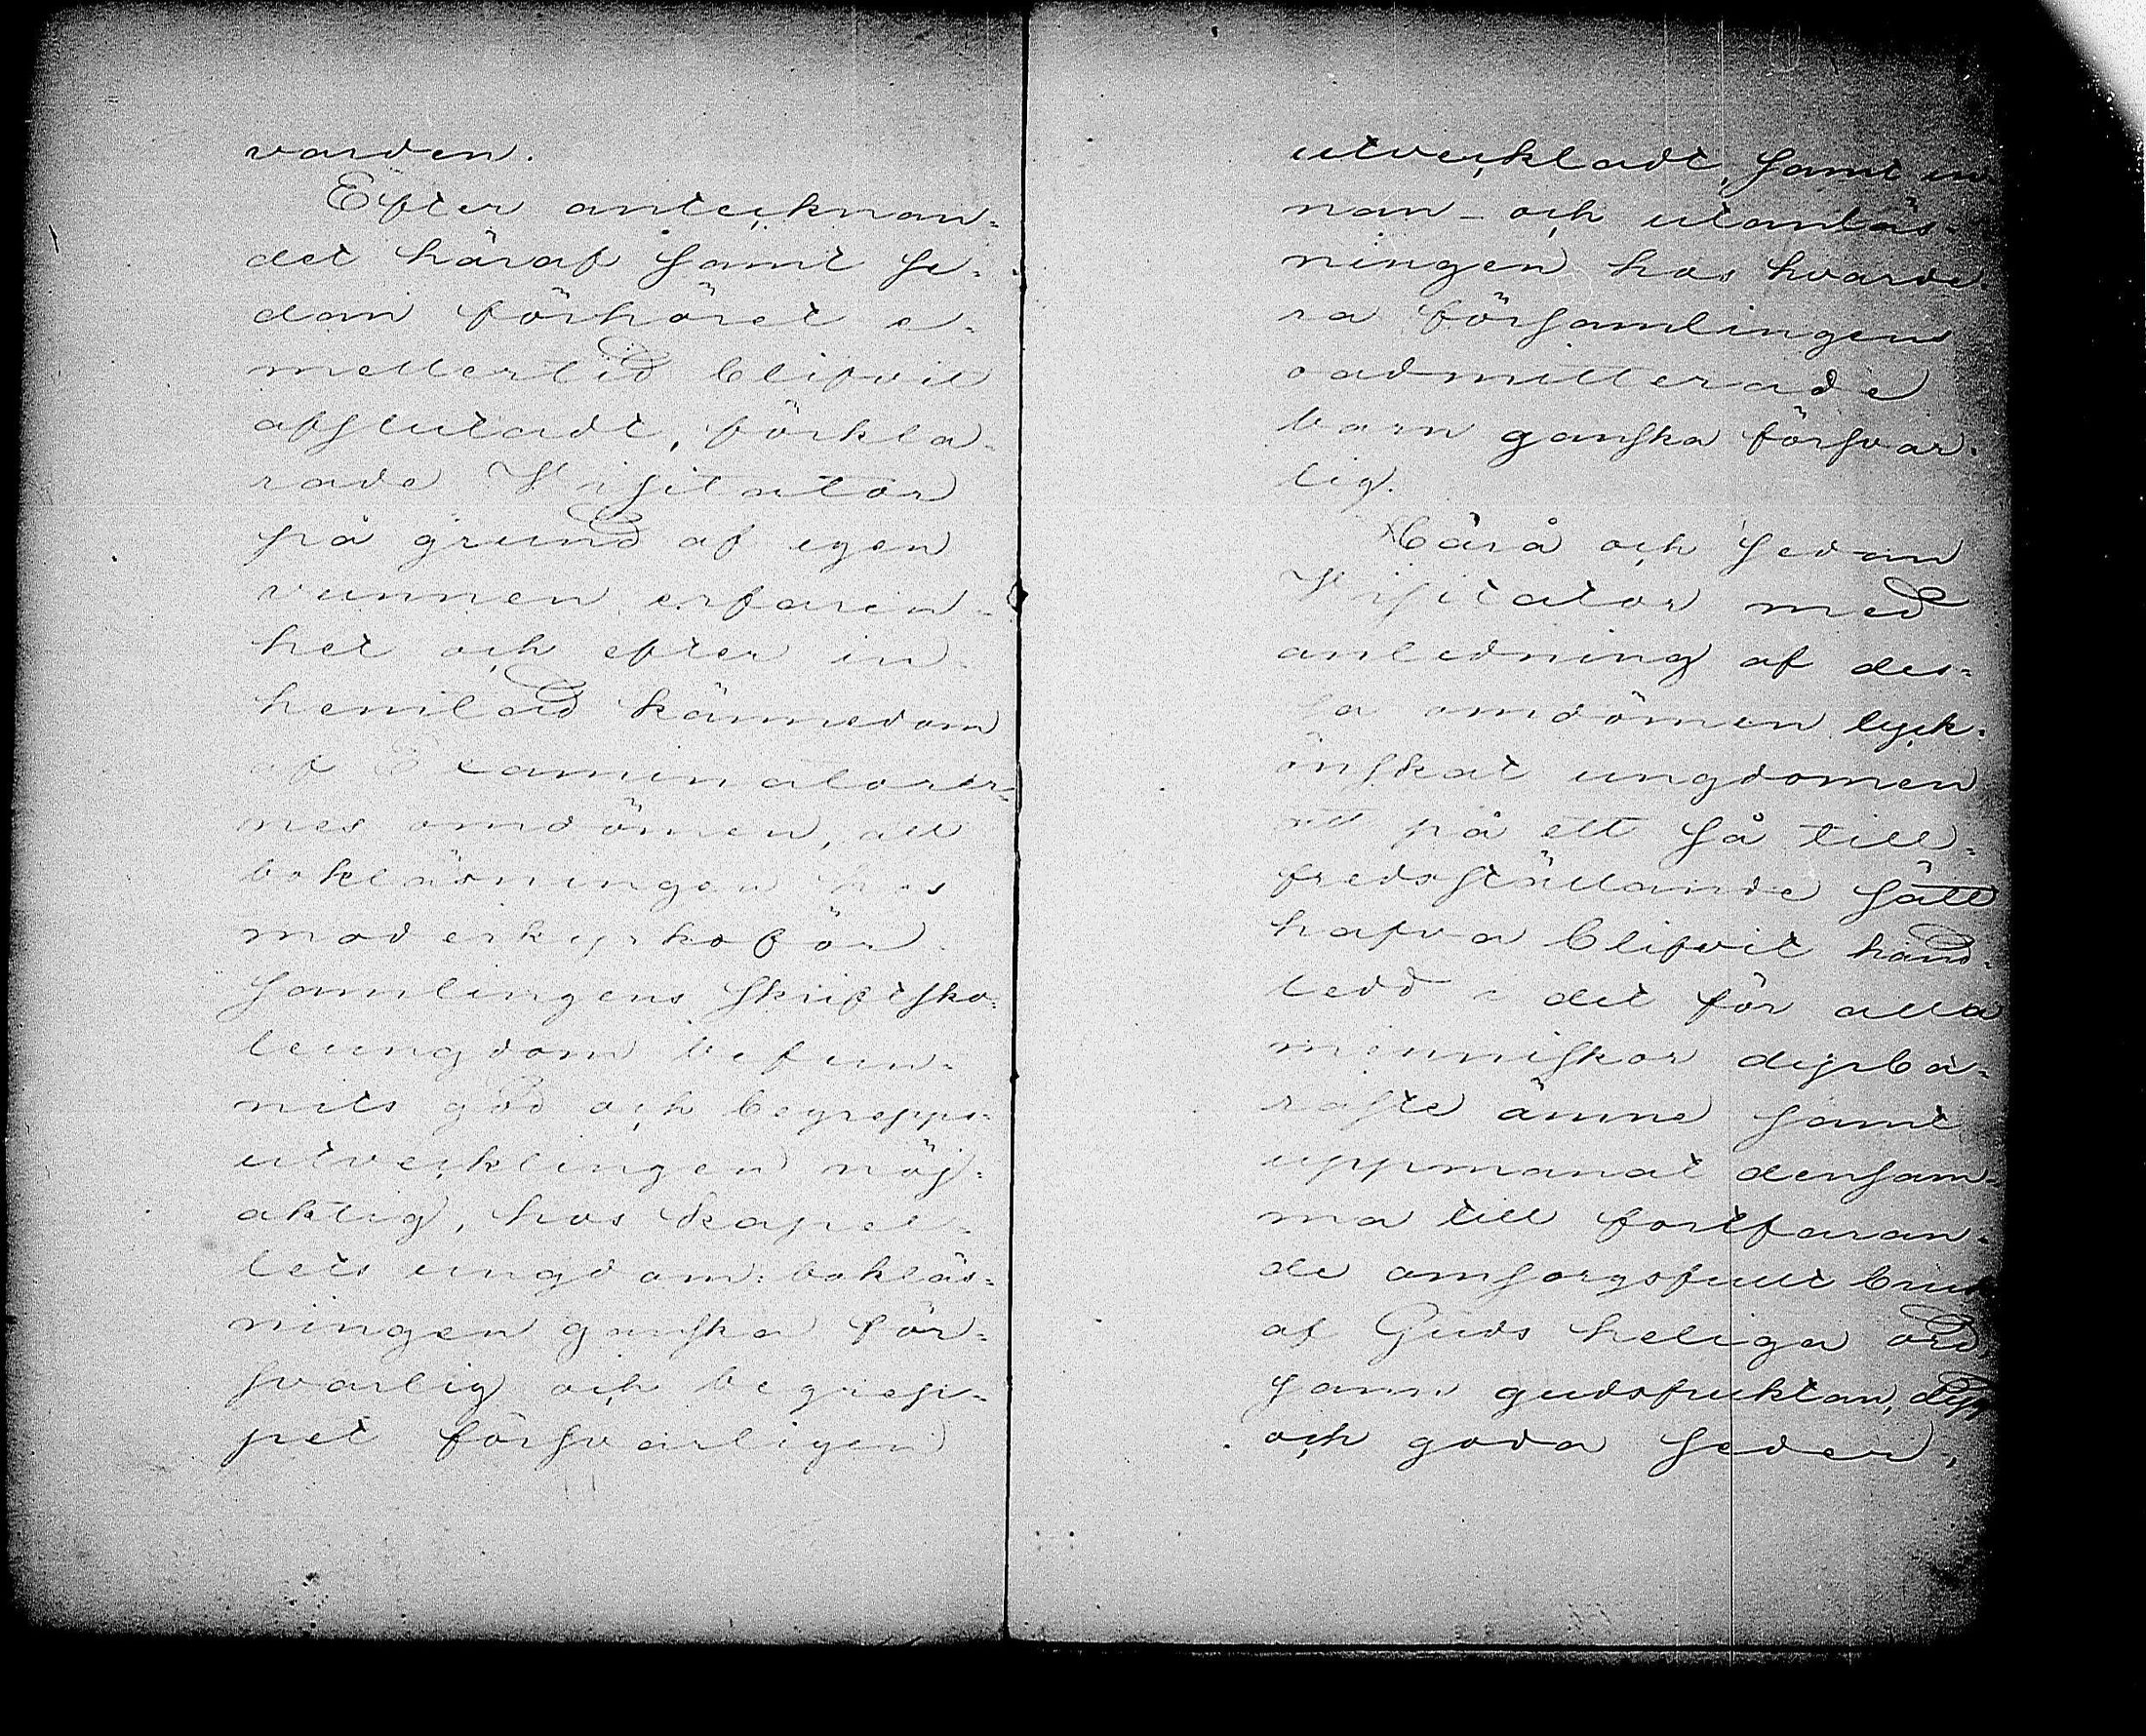 varden.
Efter antecknan-
det häraf samt se-
dan förhöret e-
mellertid blifvit
afslutadt, förkla-
rade Visitator
på grund af egen
vunnen erfaren-
het och efter in-
hemtad kännedom
af Examinatorer-
nes omdömen, att
bokläsningen hos
moderkyrkoför-
samlingens skriftsko-
leungdom befun-
nits god och begrepps-
utvecklingen nöj-
aktig, hos kapel-
lets ungdom: bokläs-
ningen ganska för-
svarlig och begrep-
pet försvarligen
utveckladt, samt in-
nan- och utanläs-
ningen hos hvarde-
ra församlingens
oadmitterade
barn ganska försvar-
lig.
Härå och sedan
Visitator med
anledning af des-
sa omdömen lyck-
önskat ungdomen
att på ett så till-
fredsställande sätt
hafva blifvit hand-
ledd i det för alla
menniskor dyrba-
raste ämne samt
uppmanat densam-
ma till fortfaran-
de omsorgsfullt bruk
af Guds heliga ord,
sann gudsfruktan,
och goda seder,